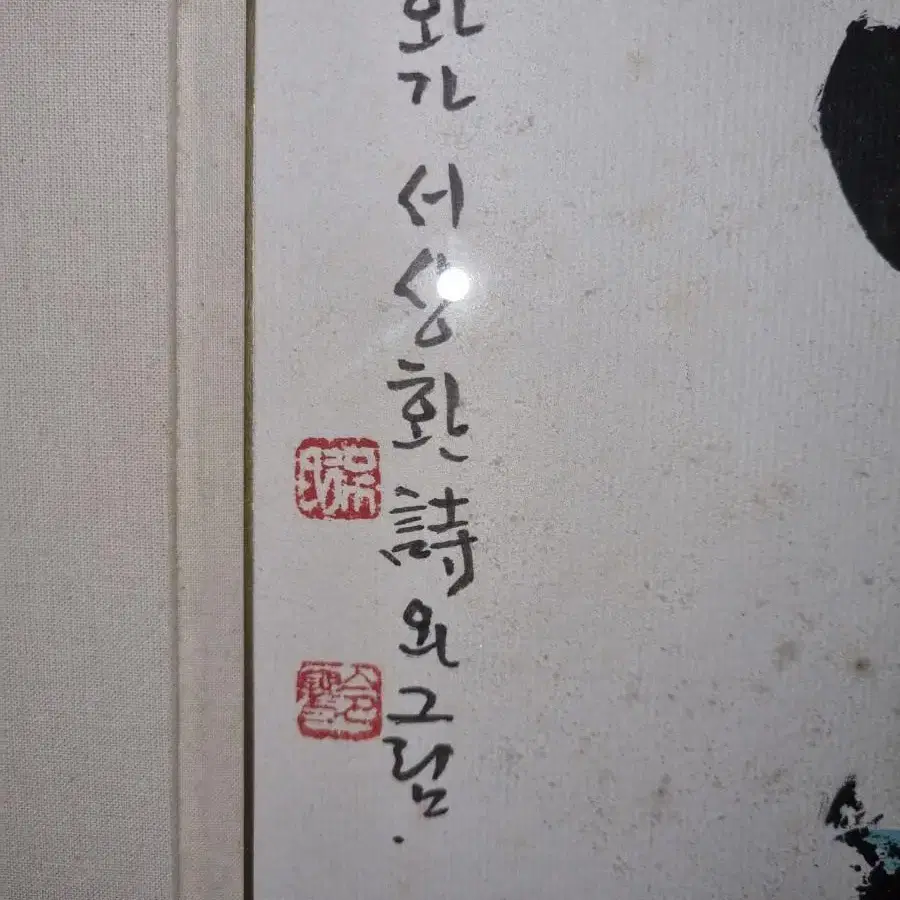 화가 서상환 詩와 그림.